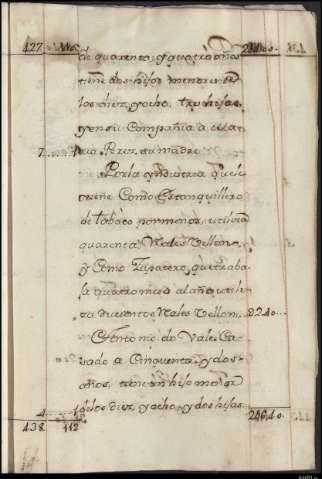 427
de quarenta, y quatro años
tiene dos hijos menores de
los diez, y ocho, tres hijas,
y en su Compañia a Ma
7 ria Perez su madre
Por la Yndustria que ti
ene Como Estanquillero
de tabaco por menor, utiliza
quarenta Reales Vellon,
y Como Zapatero, que traba
ja quatro meses al año, utili
za duzientos Reales Vellon. 240..
Antonio do Vale, Ca
sado de Cinquenta, y dos
años, tiene un hijo menor
4 1 de los diez, y ocho, y dos hijas
438 112 24640..